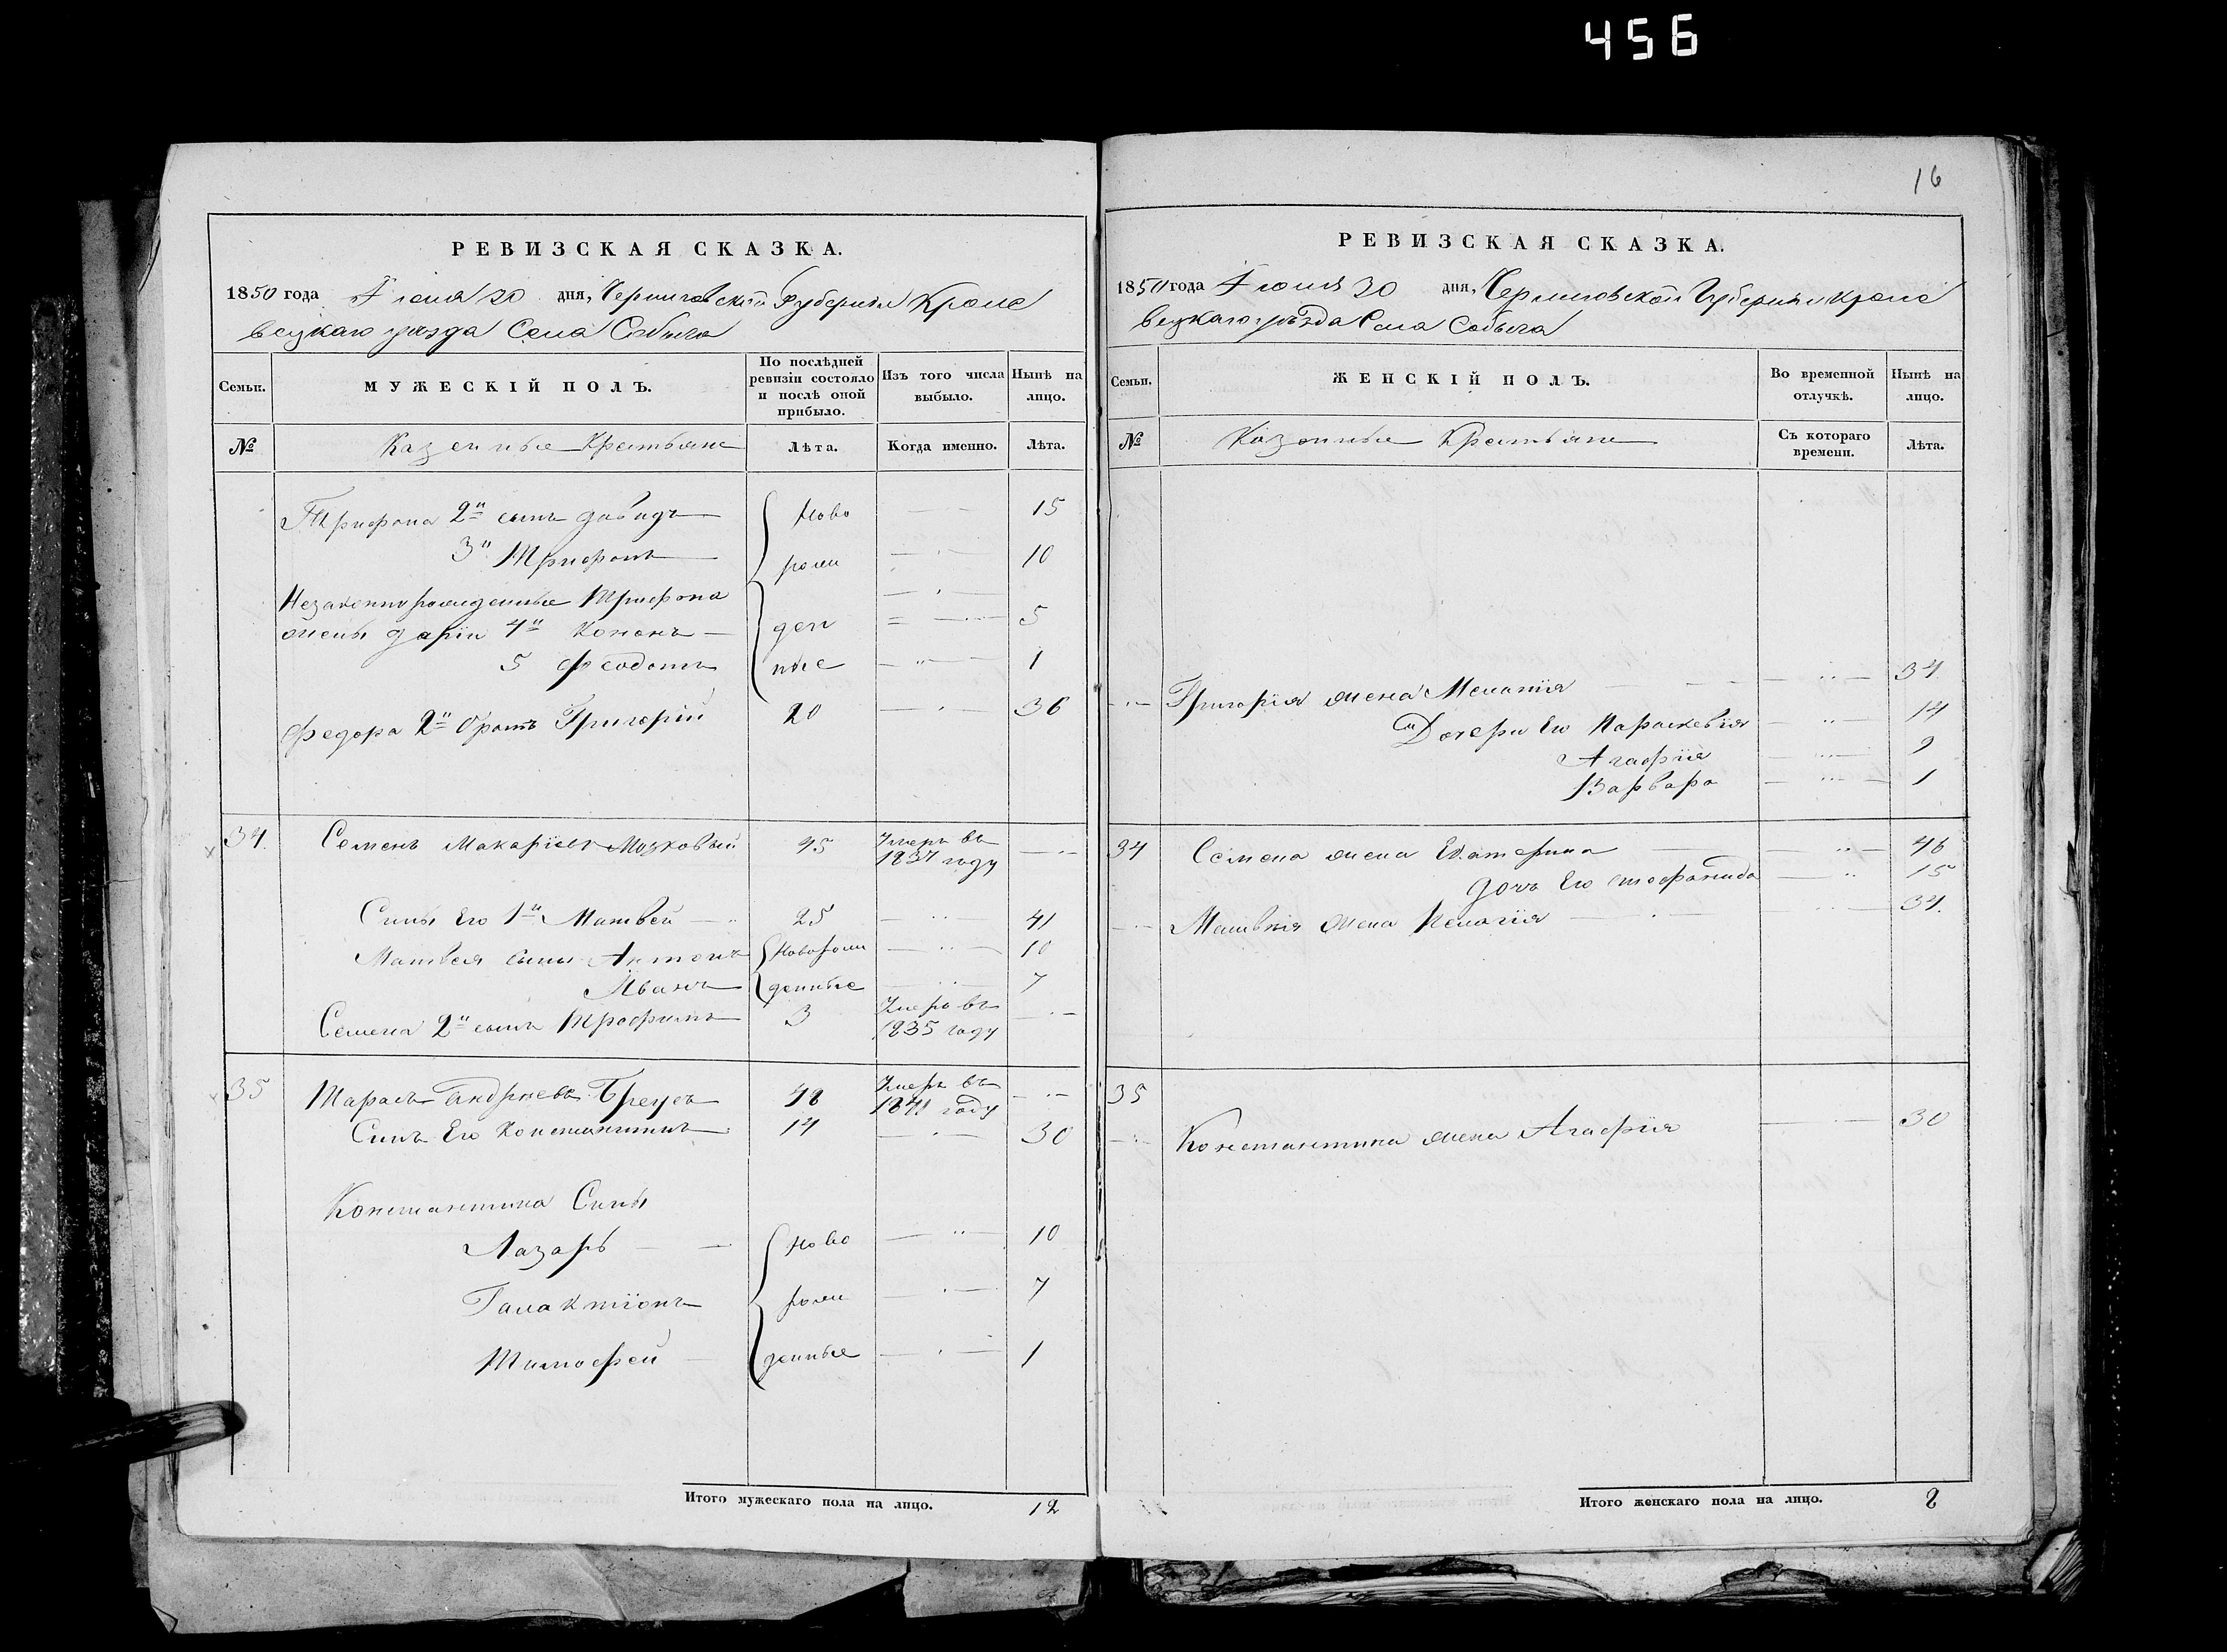 456
РЕВИЗСКАЯ СКАЗКА.
1850 года Іюня 20 дня, Черниговской Губерніи Кроле
вецкаго уезда Села Собыча
Семьи.
МУЖЕСКІЙ ПОЛЪ.
По послѣдней
ревизіи состояло
и послѣ оной
прибыло.
Изъ того числа
выбыло.
Нынѣ на
лицо.
№ Казенные Крестьяне Лѣта. Когда именно. Лѣта.
Трифона 2й сынъ давидъ Ново 15
3й Трифонъ рож 10
Незаконнорожденные Трифона
жены даріи 4й Кононъ ден 5
5 Феодотъ ные 1
Федора 2й братъ Григорій 20 36
34. Семенъ Макаріевъ Мозковый 45 Умеръ въ
1837 году
Сынъ Его 1й Матвей 25 41
Матвея сыны Антонъ Новорож 10
Иванъ денные 7
Семена 2й сынъ Трофимъ 3 Умеръ въ
1835 году
35 Тарасъ Андреевъ Бреусъ 48 Умеръ въ
1841 году
Сынъ Его Константинъ 14 30
Константина Сыны
Лазарь Ново 10
Галактіонъ рож 7
Тимофей денные 1
Итого мужескаго пола на лицо. 12
16
РЕВИЗСКАЯ СКАЗКА.
1850 года Іюня 20 дня, Черниговской Губерніи Кроле
вецкаго уѣзда Села Собыча
Семьи.
ЖЕНСКІЙ ПОЛЪ.
Во временной
отлучкѣ.
Нынѣ на
лицо.
№ Казенные Крестьяне
Съ котораго
времени.
Лѣта.
Григорія жена Меланія 34.
Дочери Его Параскевія 14
Агафія 9
Варвара 1
34 Семена жена Екатерина 46
дочь Его 15
Матвѣя жена Пелагія 34.
35
Константина жена Агафія 30
Итого женскаго пола на лицо. 8